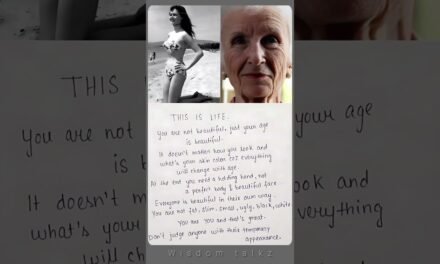 THIS IS LIFE.
You are not beautiful, just your age
is beautiful.
It doesn't matter how you look and
what's your skin color coz everything
will change with age.
At the end you need a holding hand, not
a perfect body & beautiful face
Everyone is beautiful in their own way.
You are not fat, slim, small, ugly, black, white
You are You and that's great.
Don't judge anyone with their temporary
appearance.
Wisdom talkz
THIS
You are not
your age
is b
It doesn't
ook and
what's your
verything
will ch